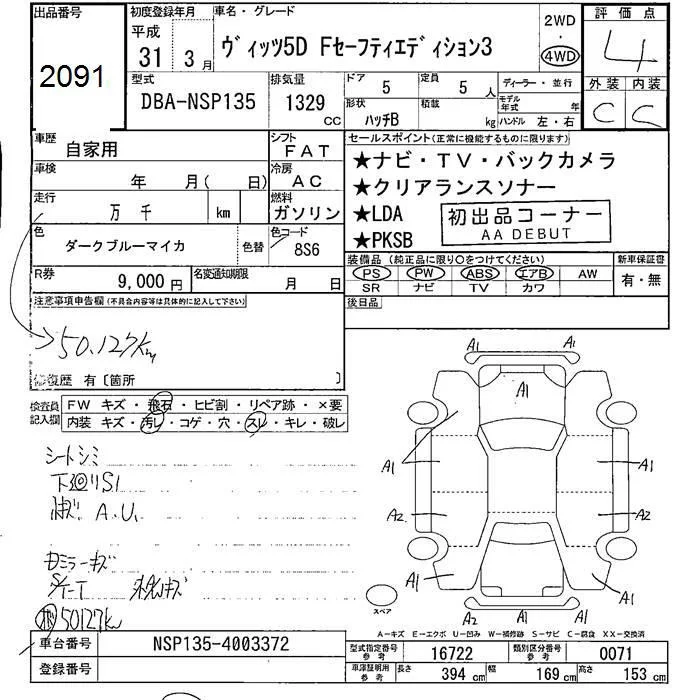 出品番号
2091
初度登録年月
平成
31 3 月
車名・グレード
ヴィッツ5D Fセーフティエディション3
2WD
・
4WD
評価点
4
型式
DBA-NSP135
排気量
1329
CC
ドア
5
定員
5 人
形状
ハッチB
積載
kg
ディーラー・並行
モデル年式 年
ハンドル 左・右
外装 内装
C C
車歴
自家用
シフト
FAT
車検
年 月( 日)
冷房
AC
走行
万 千 km
燃料
ガソリン
色
ダークブルーマイカ
色替
色コード
8S6
R券
9,000 円
名変通知期限
月 日
セールスポイント(正常に機能するものに限ります)
★ナビ・TV・バックカメラ
★クリアランスソナー
★LDA
★PKSB
初出品コーナー
AA DEBUT
装備品(純正品に限り○をつけてください)
PS PW ABS エアB AW
SR ナビ TV カワ
新車保証書
有・無
後日品
注意事項申告欄(不具合内容等は具体的に記入して下さい)
50.127km
修復歴 有〔箇所 〕
検査員記入欄
FW キズ・飛石・ヒビ割・リペア跡・×要
内装 キズ・汚レ・コゲ・穴・スレ・キレ・破レ
シートシミ
下廻りS1
A.U.
ミラーキズ
50127km
A1 A1
A1
A1 A1
A2 A2
A1 A1
A2 A1 A1
スペア
A-キズ E-エクボ U-凹み W-補修跡 S-サビ C-腐食 XX-交換済
車台番号
NSP135-4003372
登録番号
型式指定番号参考
16722
類別区分番号参考
0071
車庫証明用参考
長さ 394 cm 幅 169 cm 高さ 153 cm